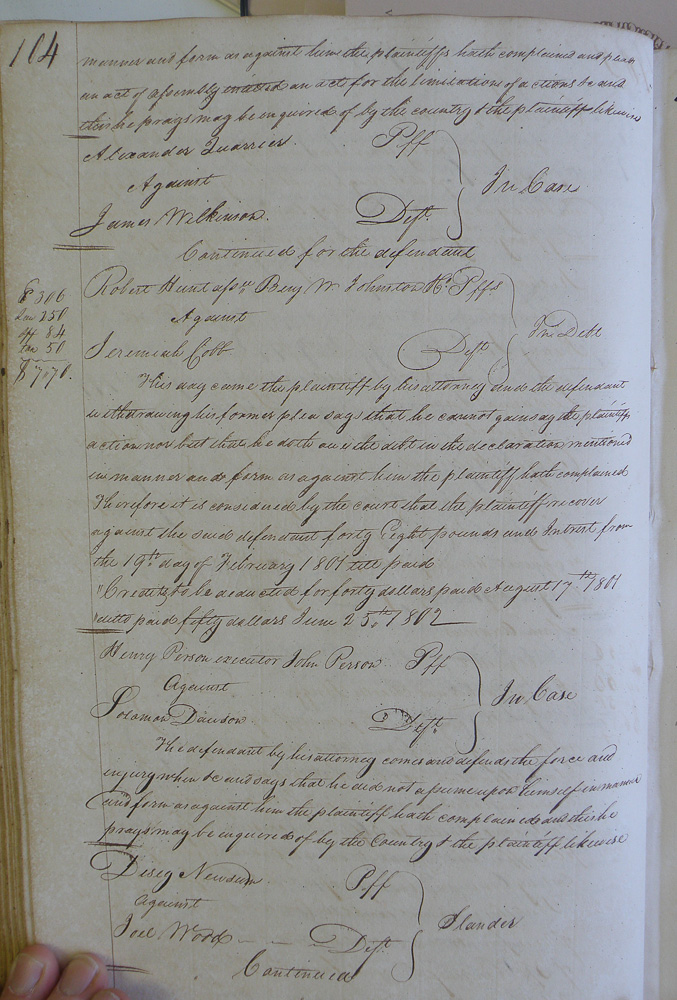 104
manner and form as against him the plaintiffs hath complained and pleas
an act of assembly entitled an act for the limitations of actions &c and
this he prays may be inquired of by the country & the plaintiff likewise
Alexander Quarrier. Pff
Against
James Wilkinson. Deft.
In Case
Continued for the defendant
Robert Hunt assee Benj W. Johnston Pffs
Against
Jeremiah Cobb Deft
In Debt
306
150
84
50
$7,70.
This day came the plaintiff by his attorney and the defendant
withdrawing his former plea says that he cannot gainsay the plaintiffs
action nor but that he doth owe the debt in the declaration mentioned
in manner and form as against him the plaintiff hath complained
Therefore it is considered by the court that the plaintiff recover
against the said defendant forty Eight pounds and Intrest from
the 19th day of February 1801 till paid
"Credits to be deducted for forty dollars paid August 17th 1801
ditto paid fifty dollars June 25th 1802
Henry Person executor John Person Pff
Against
Solomon Dawson Deft.
In Case
The defendant by his attorney comes and defends the force and
injury when &c and says that he did not assume upon himself in manner
and form as against him the plaintiff hath complained and this he
prays may be enquired of by the Country & the plaintiff likewise
Disey Newsum Pff
Against
Joel Wood Deft.
Slander
Continued